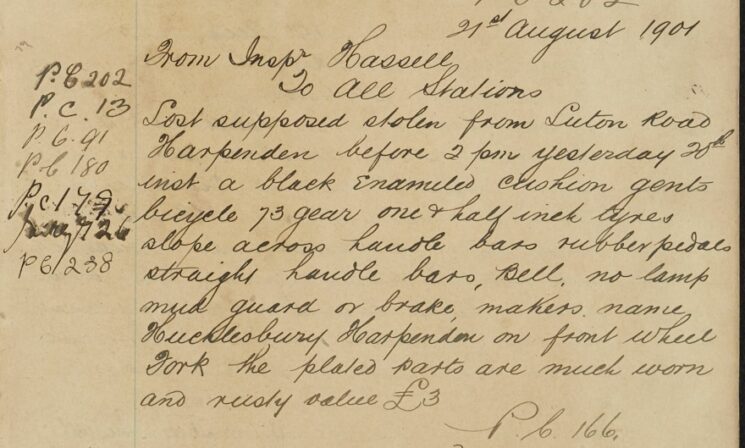 21st August 1901
From Inspr Hassell
To All Stations
P.C 202
P.C. 13
P C. 91
P C 180
P.C 179
126
P C 238
Lost supposed stolen from Luton Road
Harpenden before 2 pm yesterday 20th
inst a black Enameled cushion gents
bicycle 73 gear one & half inch tyres
slope across handle bars rubber pedals
straight handle bars, Bell, no lamp
mud guard or brake, makers name
Hucklesbury Harpenden on front wheel
Fork the plated parts are much worn
and rusty value £3
P C. 166.